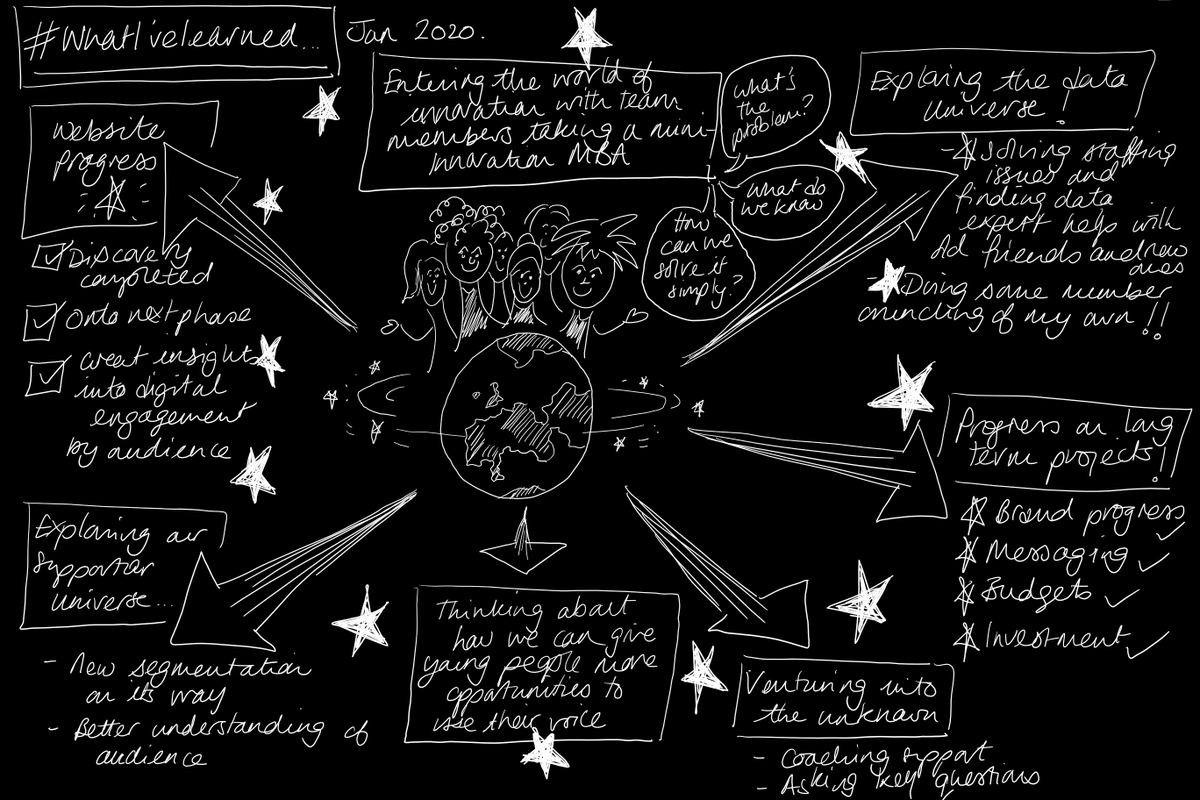 #WhatI'velearned...
Jan 2020.
Entering the world of
innovation with team
members taking a mini-
innovation MBA
what's
the
problem?
what do
we know
How
can we
solve it
simply?
Exploring the data
universe!
- Solving staffing
issues and
finding data
expert help with
old friends and new
ones
- Doing some number
crunching of my own!!
website
progress
Discovery
completed
Onto next phase
Great insights
into digital
engagement
by audience
Progress on long
term projects!!
Brand progress
Messaging
Budgets
Investment
Exploring our
supporter
universe...
- New segmentation
on its way
- Better understanding of
audience
Thinking about
how we can give
young people more
opportunities to
use their voice
Venturing into
the unknown
- Coaching support
- Asking key questions